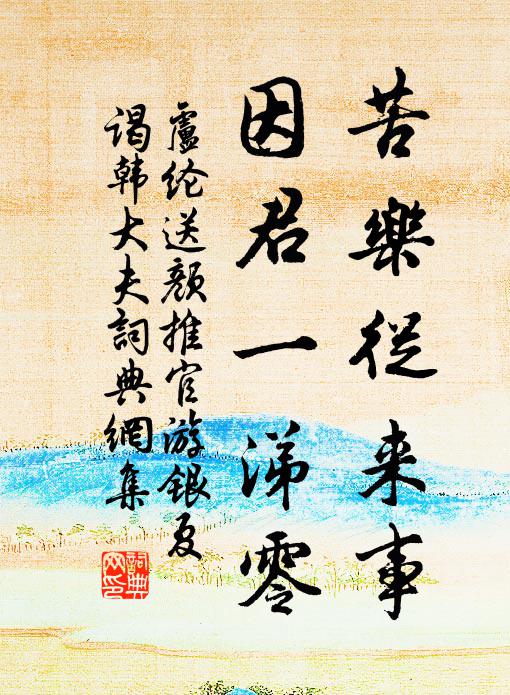 苦樂從来事
因君一涕零
盧纶送顏推官游銀夏
謁韩大夫詞典網集
詞典